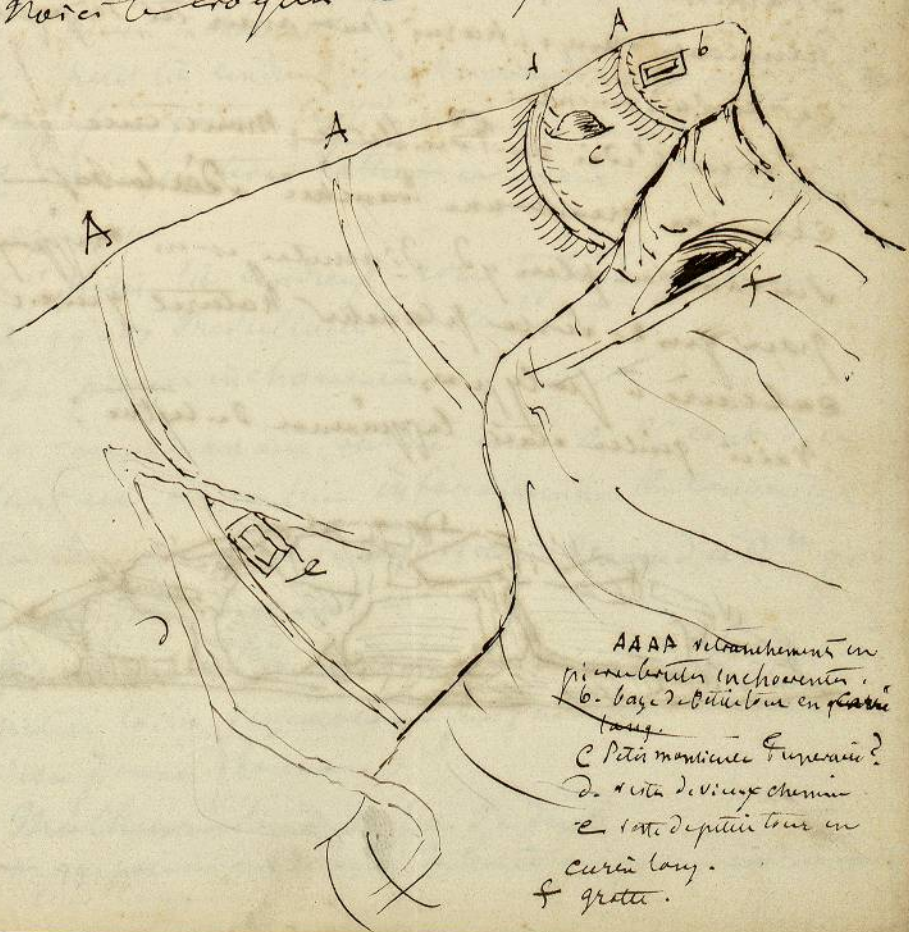 Voici le croquis
A
b
A
A
c
A
f
e
d
AAAA retranchements en
pierres brutes incohérentes.
b. base de petite tour en carré
long.
C Petit monticule funéraire?
d. reste de vieux chemin
e reste de petite tour en
carré long.
f grotte.